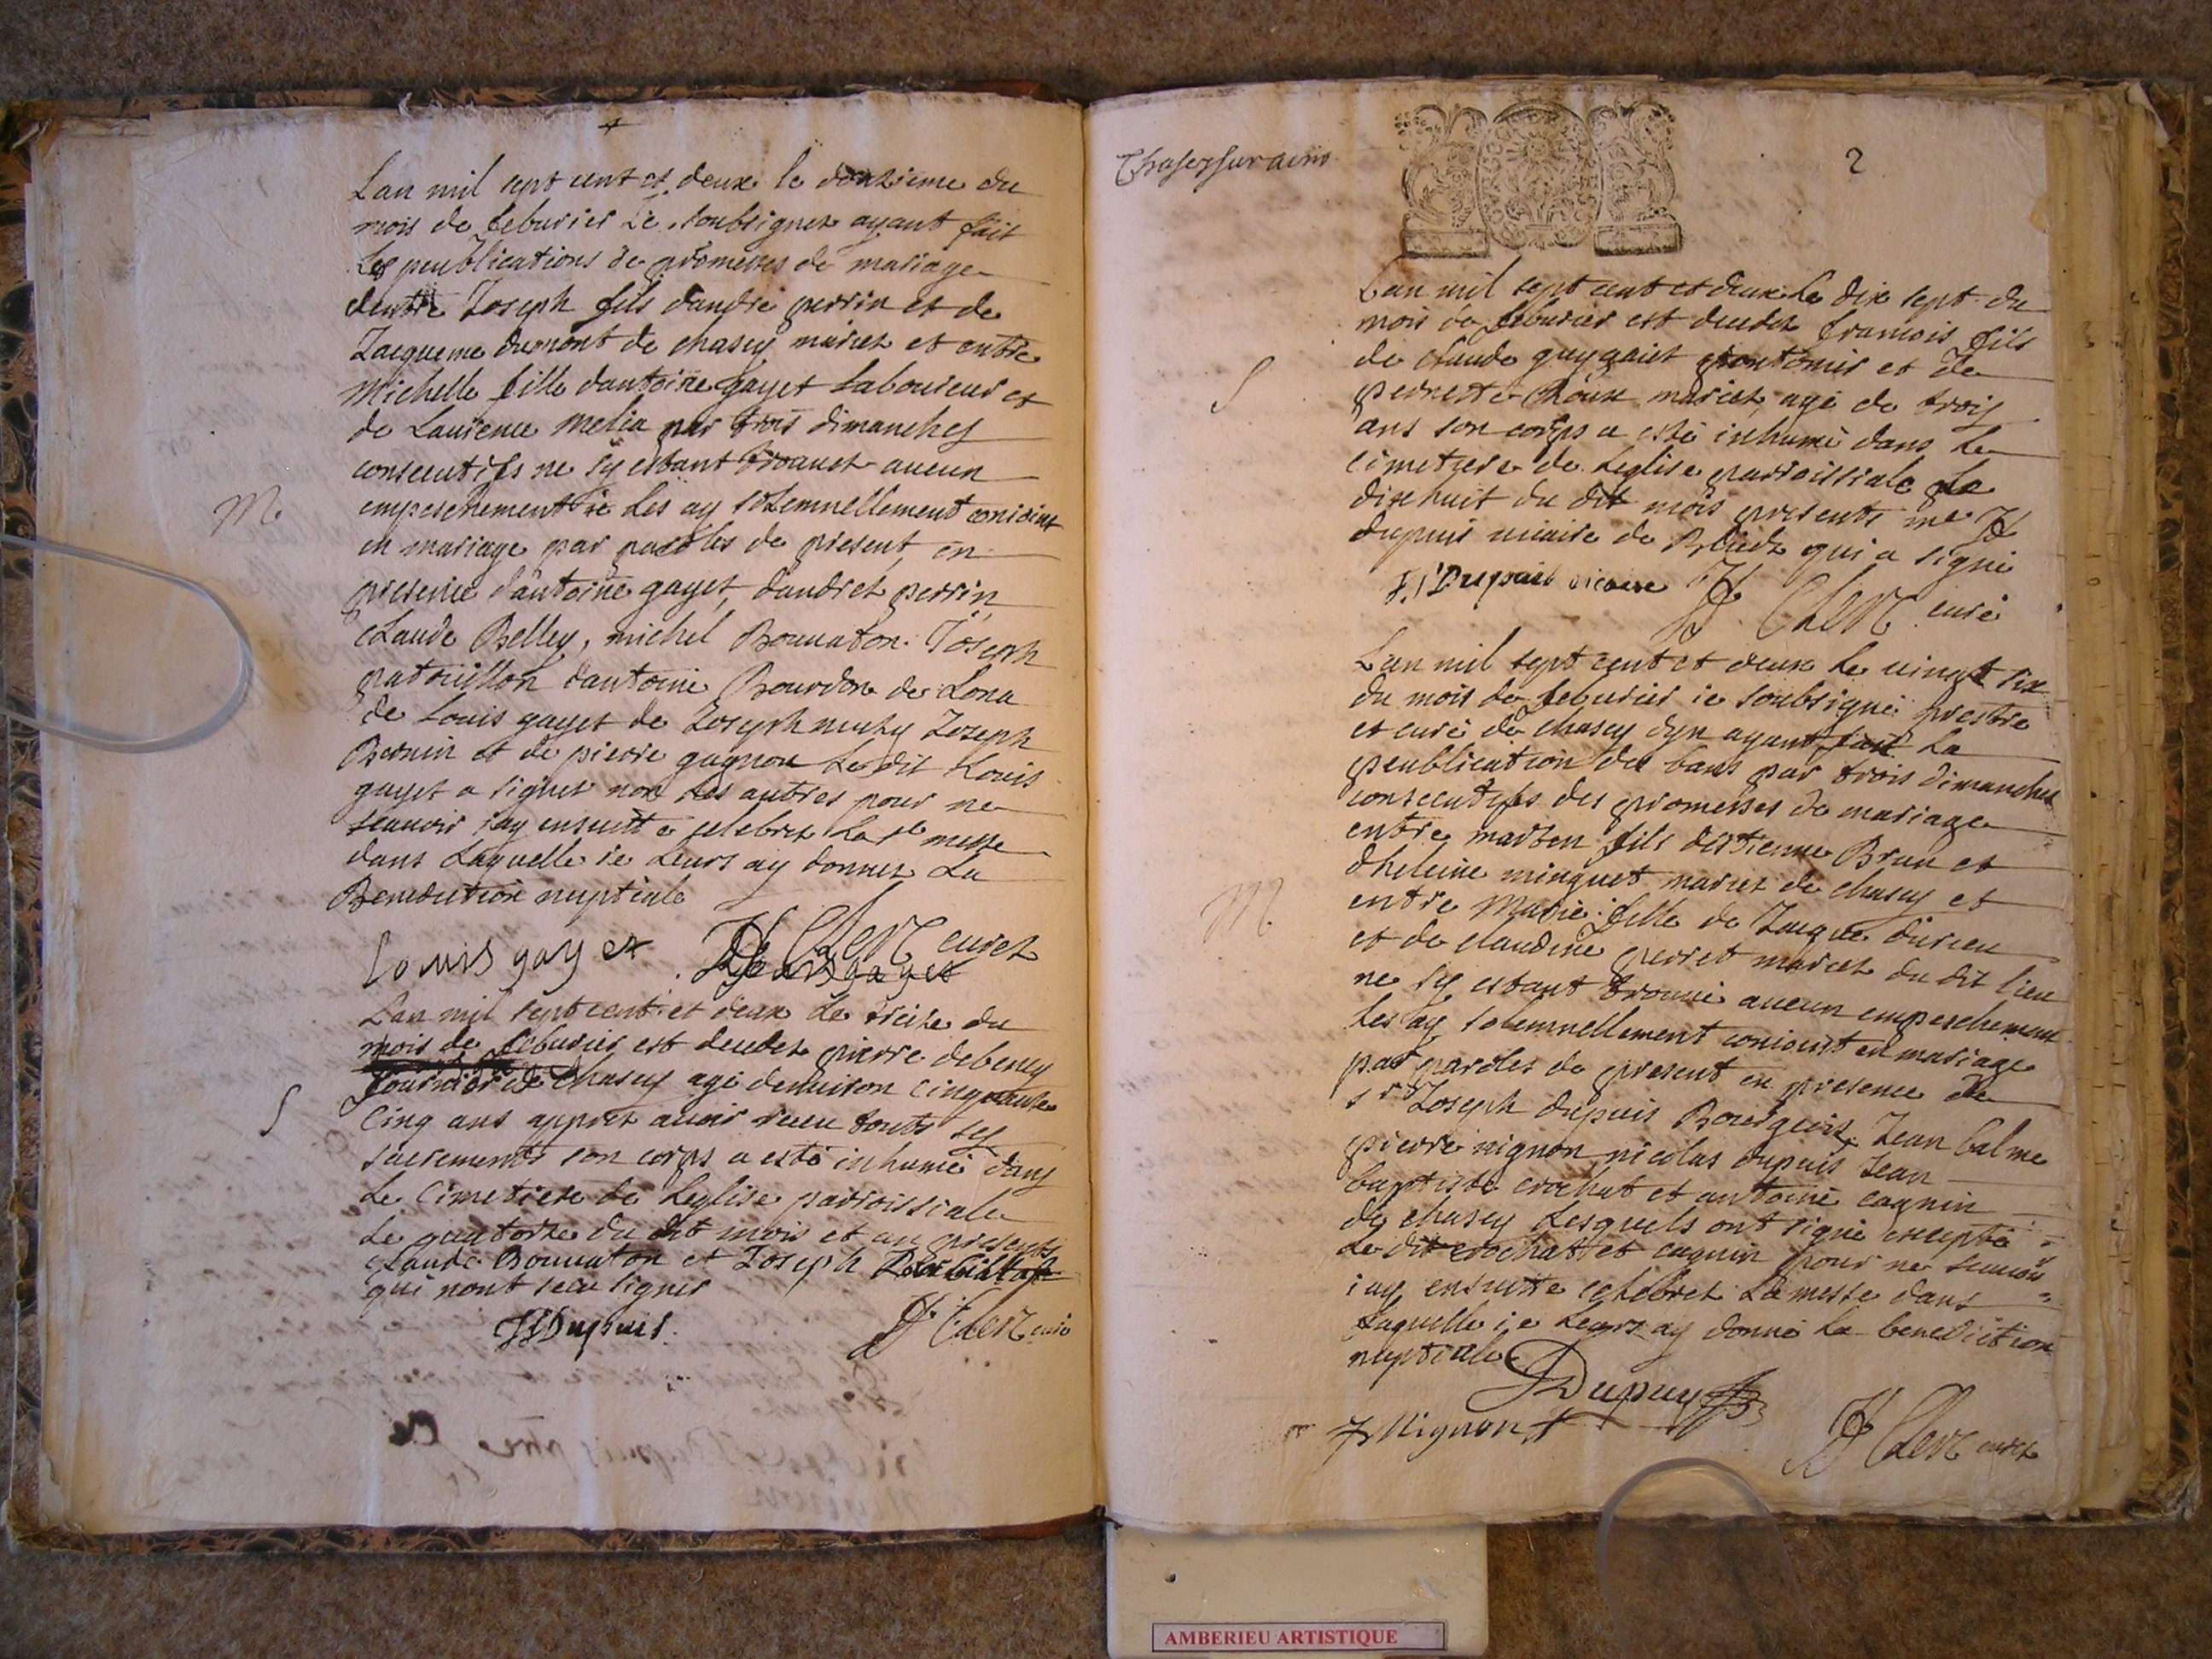 Lan mil sept cent et deux le douzieme du
mois de feburier Ie soubsignez ayant fait
Les peublications de promesses de mariage
dentre Joseph fils dandre perrin et de
Jacqueme dumont de chasey mariez et entre
Michelle fille dantoine gayet Laboureur et
de Laurence melia par trois dimanches
consecutifs ne sy estant trouuet aucun
M
empeschement ie Les ay solemnellement conioint
en mariage par parolles de present en
presence dantoine gayet, dandrez perrin
Claude Belley, michel Bouuaton. Joseph
patouillon dantoine Bourdon de Lona
de Louis gayet de Joseph Joseph
Bernin et de pierre gagnon Le dit Louis
gayet a signez non Les autres pour ne
scauoir iay ensuitte celebrez La ste messe
dans Laquelle ie Leurs ay donnez La
Benediction nuptiale
Louis gayet Clerc curez
Lan mil sept cent et deux Le treize du
mois de feburier est decedez pierre debeney
de Chasey agé denuiron Cinquante
S
Cinq ans apprez auoir receu touts ses
sacrements son corps a esté inhumé dans
Le Cimetiere de Leglise parroissiale
Le quatorze du dit mois et an presents
Claude Bouuaton et Joseph
qui nont sceu signer
Dupuis. Clerc curé
Chasey sur ains
2
Lan mil sept cent et deux Le dix sept du
mois de feburier est decedez francois fils
de Claude guygaict et de
S
pernette Choux mariez, agé de trois
ans son corps a esté inhumé dans Le
cimetiere de Leglise parroissiale Le
dix huit du dit mois presents me
dupuis vicaire de qui a signé
Dupuis vicaire Clerc curé
Lan mil sept cent et deux Le uingt six
du mois de feburier ie soubsigné prestre
et curé de chasey dyn ayant fait La
peublication des bans par trois dimanches
consecutifs des promesses de mariage
entre marten fils destienne Brun et
dheleine minguet mariez de chasey et
M
entre Marie fille de Jacque durieu
et de claudine perret mariez du dit lieu
ne sy estant trouué aucun empeschement
Les ay solemnellement conioint en mariage
par paroles de present en presence de
sr Joseph dupuis Bourgeois, Jean balme
pierre nignon, nicolas dupuis Jean
baptiste crochat et antoine cagnin
de chasey Lesquels ont signé excepté
Le dit crochat et cagnin pour ne scauoir
iay ensuitte celebrez La messe dans
Laquelle ie Leurs ay donné La benediction
nuptiale
Dupuy
Nignon Clerc curez
AMBERIEU ARTISTIQUE